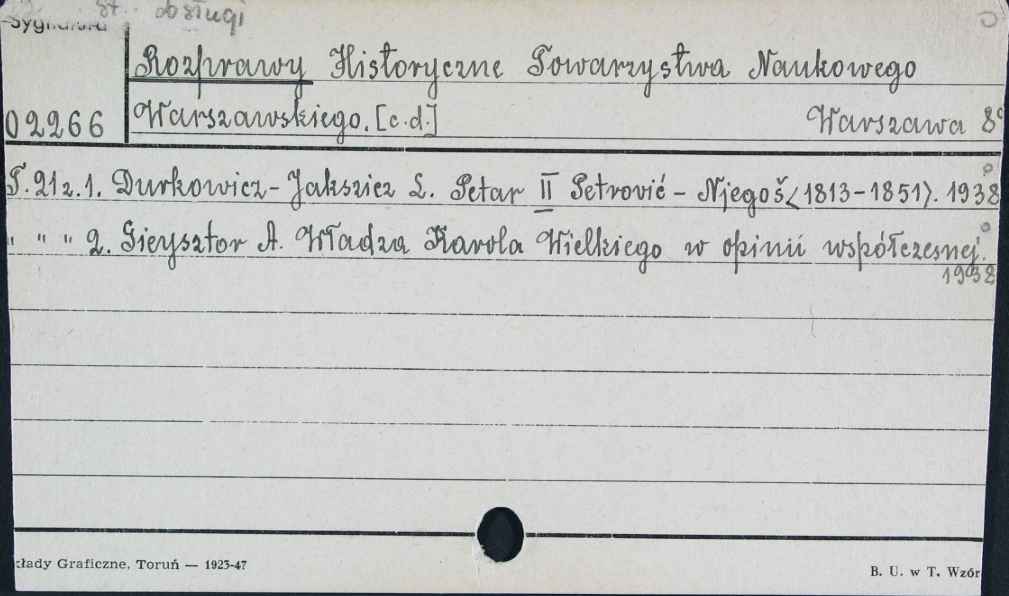 st. obsługi
Sygnatura
Rozprawy Historyczne Towarzystwa Naukowego
02266 Warszawskiego. [c.d.] Warszawa 8°
T. 21 z. 1. Durkowicz-Jakszicz L. Petar II Petrović - Njegoš <1813-1851>. 1938
" " " 2. Gieysztor A. Władza Karola Wielkiego w opinii współczesnej.
1938
kłady Graficzne, Toruń — 1923-47
B. U. w T. Wzór